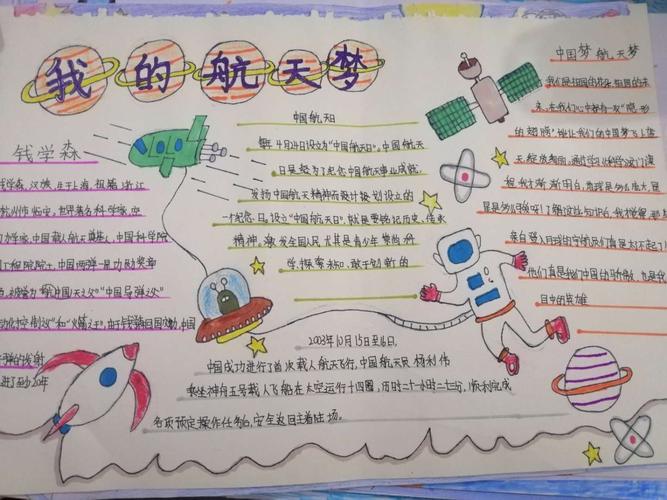 我的航天梦
钱学森
钱学森,汉族,生于上海,祖籍浙江
杭州市临安。世界著名科学家,空
动力学家,中国载人航天奠基人,中国科学院
工程院院士,中国两弹一星功勋奖章
被誉为“中国航天之父”“中国导弹之父”
自动化控制之父”和“火箭之王”,由于钱学森回国效力,中国
导弹的发射
推进了至少20年
中国航天日
每年4月24日设立为“中国航天日”。中国航天
日是为了纪念中国航天事业成就,
发扬中国航天精神而计划设立的
一个纪念日。设立“中国航天日”,就是要铭记历史、传承
精神,激发全国人民尤其是青少年崇尚科
学、探索未知、敢于创新的
2003年10月15日至16日,
中国成功进行了首次载人航天飞行,中国航天员杨利伟
乘坐神舟五号载人飞船在太空运行十四圈,历时二十一小时二十三分,顺利完成
各项预定操作任务后,安全返回主着陆场。
中国梦航天梦
我们是祖国的花朵,祖国的未
来,在我们心中都有一双“隐形
的翅膀”
亲自登入月球的宇航员们真是太不起了
他们真是我们中国的骄傲,也是我
目中的英雄